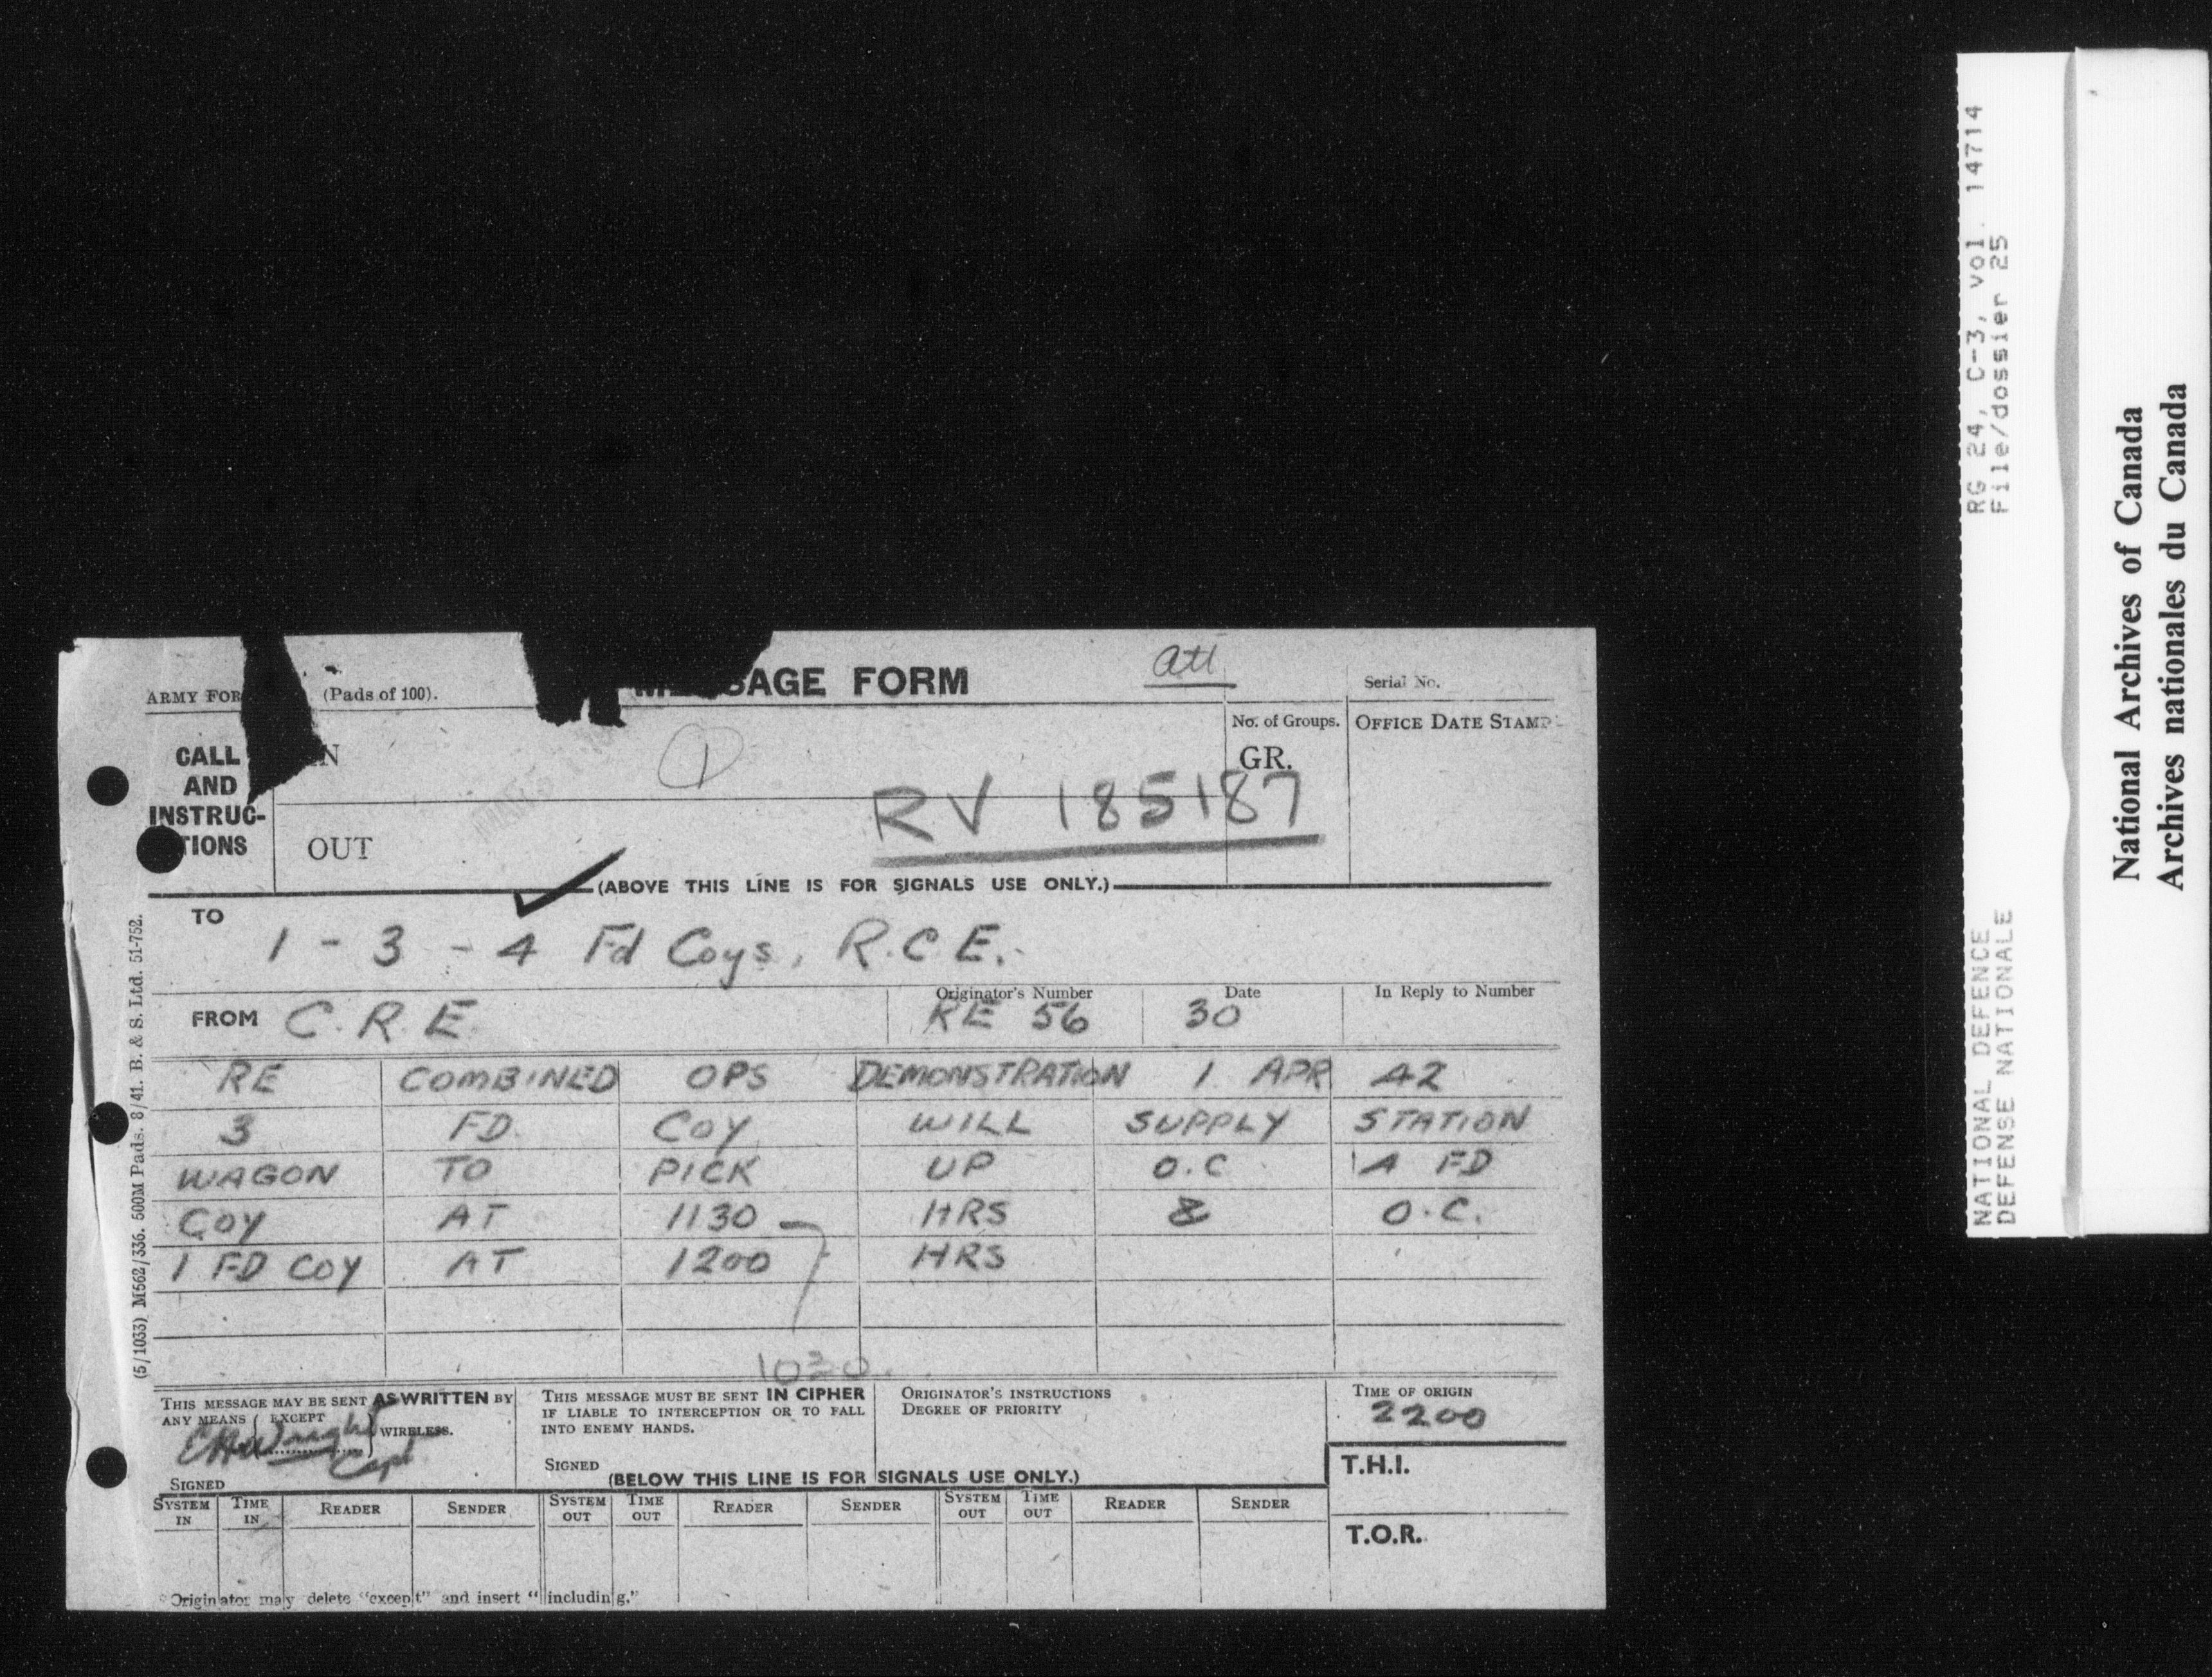 ARMY FOR (Pads of 100).
SAGE FORM
att
Serial No.
CALL AND INSTRUC-TIONS
N
1
No. of Groups.
OFFICE DATE STAMP
GR.
RV 185187
OUT
(ABOVE THIS LINE IS FOR SIGNALS USE ONLY.)
TO
1 - 3 - 4 Fd Coys, R.C.E.
FROM C.R.E.
Originator's Number
RE 56
Date
30
In Reply to Number
RE COMBINED OPS DEMONSTRATION 1 APR 42
3 FD. COY WILL SUPPLY STATION
WAGON TO PICK UP O.C 4 FD
COY AT 1130 HRS & O.C.
1 FD COY AT 1200 HRS
1030
THIS MESSAGE MAY BE SENT AS WRITTEN BY
ANY MEANS ( EXCEPT
) WIRELESS.
EHWright
Capt
SIGNED
THIS MESSAGE MUST BE SENT IN CIPHER
IF LIABLE TO INTERCEPTION OR TO FALL
INTO ENEMY HANDS.
SIGNED
ORIGINATOR'S INSTRUCTIONS
DEGREE OF PRIORITY
TIME OF ORIGIN
2200
T.H.I.
T.O.R.
(BELOW THIS LINE IS FOR SIGNALS USE ONLY.)
SYSTEM IN TIME IN READER SENDER SYSTEM OUT TIME OUT READER SENDER SYSTEM OUT TIME OUT READER SENDER
Originator may delete "except" and insert "including."
(5/1033) M562/336. 500M Pads. 8/41. B. & S. Ltd. 51-752.
RG 24, C-3, vol. 14714
File/dossier 25
NATIONAL DEFENCE
DEFENSE NATIONALE
National Archives of Canada
Archives nationales du Canada